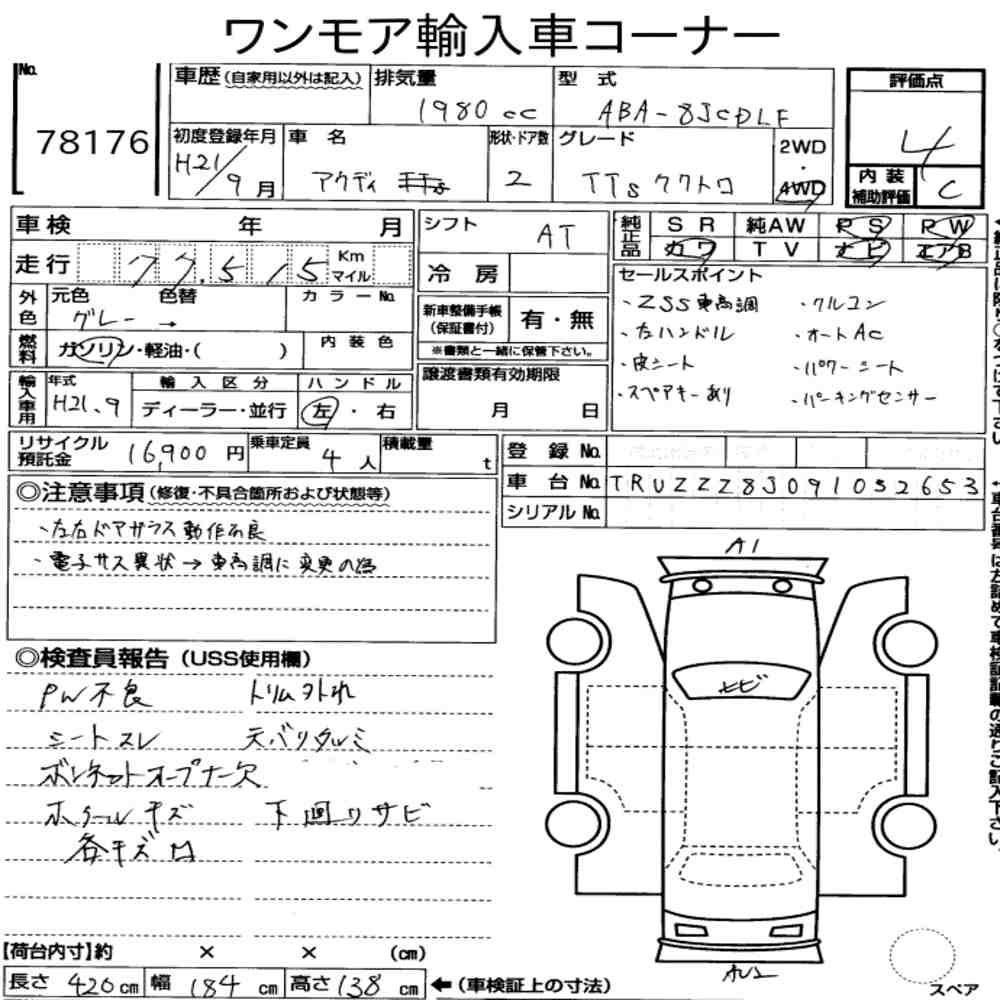 ワンモア輸入車コーナー
No.
78176
車歴 (自家用以外は記入)
排気量
1980 cc
型 式
ABA-8JCDLF
評価点
4
内装補助評価
C
初度登録年月
H21/9月
車 名
アウディ
形状・ドア数
2
グレード
TTS クワトロ
2WD
・
4WD
車検 年 月
走行 77,515 Km マイル
シフト
AT
冷 房
純正品
SR 純AW PS PW
カワ TV ナビ エアB
セールスポイント
・ZSS車高調
・左ハンドル
・皮シート
・スペアキーあり
・クルコン
・オートAC
・パワーシート
・パーキングセンサー
外色
元色 色替
グレー →
カラーNo.
燃料
ガソリン・軽油・( )
内装色
新車整備手帳(保証書付)
有・無
※書類と一緒に保管下さい。
輸入車用
年式
H21.9
輸入区分
ディーラー・並行
ハンドル
左・右
譲渡書類有効期限
月 日
リサイクル預託金
16,900円
乗車定員
4人
積載量
t
登 録 No.
車 台 No. TRUZZZ8J091052652
シリアル No.
◎注意事項 (修復・不具合箇所および状態等)
・左右ドアガラス動作不良
・電子サス異状→車高調に変更の為
◎検査員報告 (USS使用欄)
PW不良 トリムヲトれ
シートスレ 天バリタルミ
ボンネットオープナー欠
ホイールキズ 下回りサビ
各キズ凹
A1
ヒビ
スペア
【荷台内寸】約 × × (cm)
長さ 420cm 幅 184cm 高さ 138cm ←(車検証上の寸法)